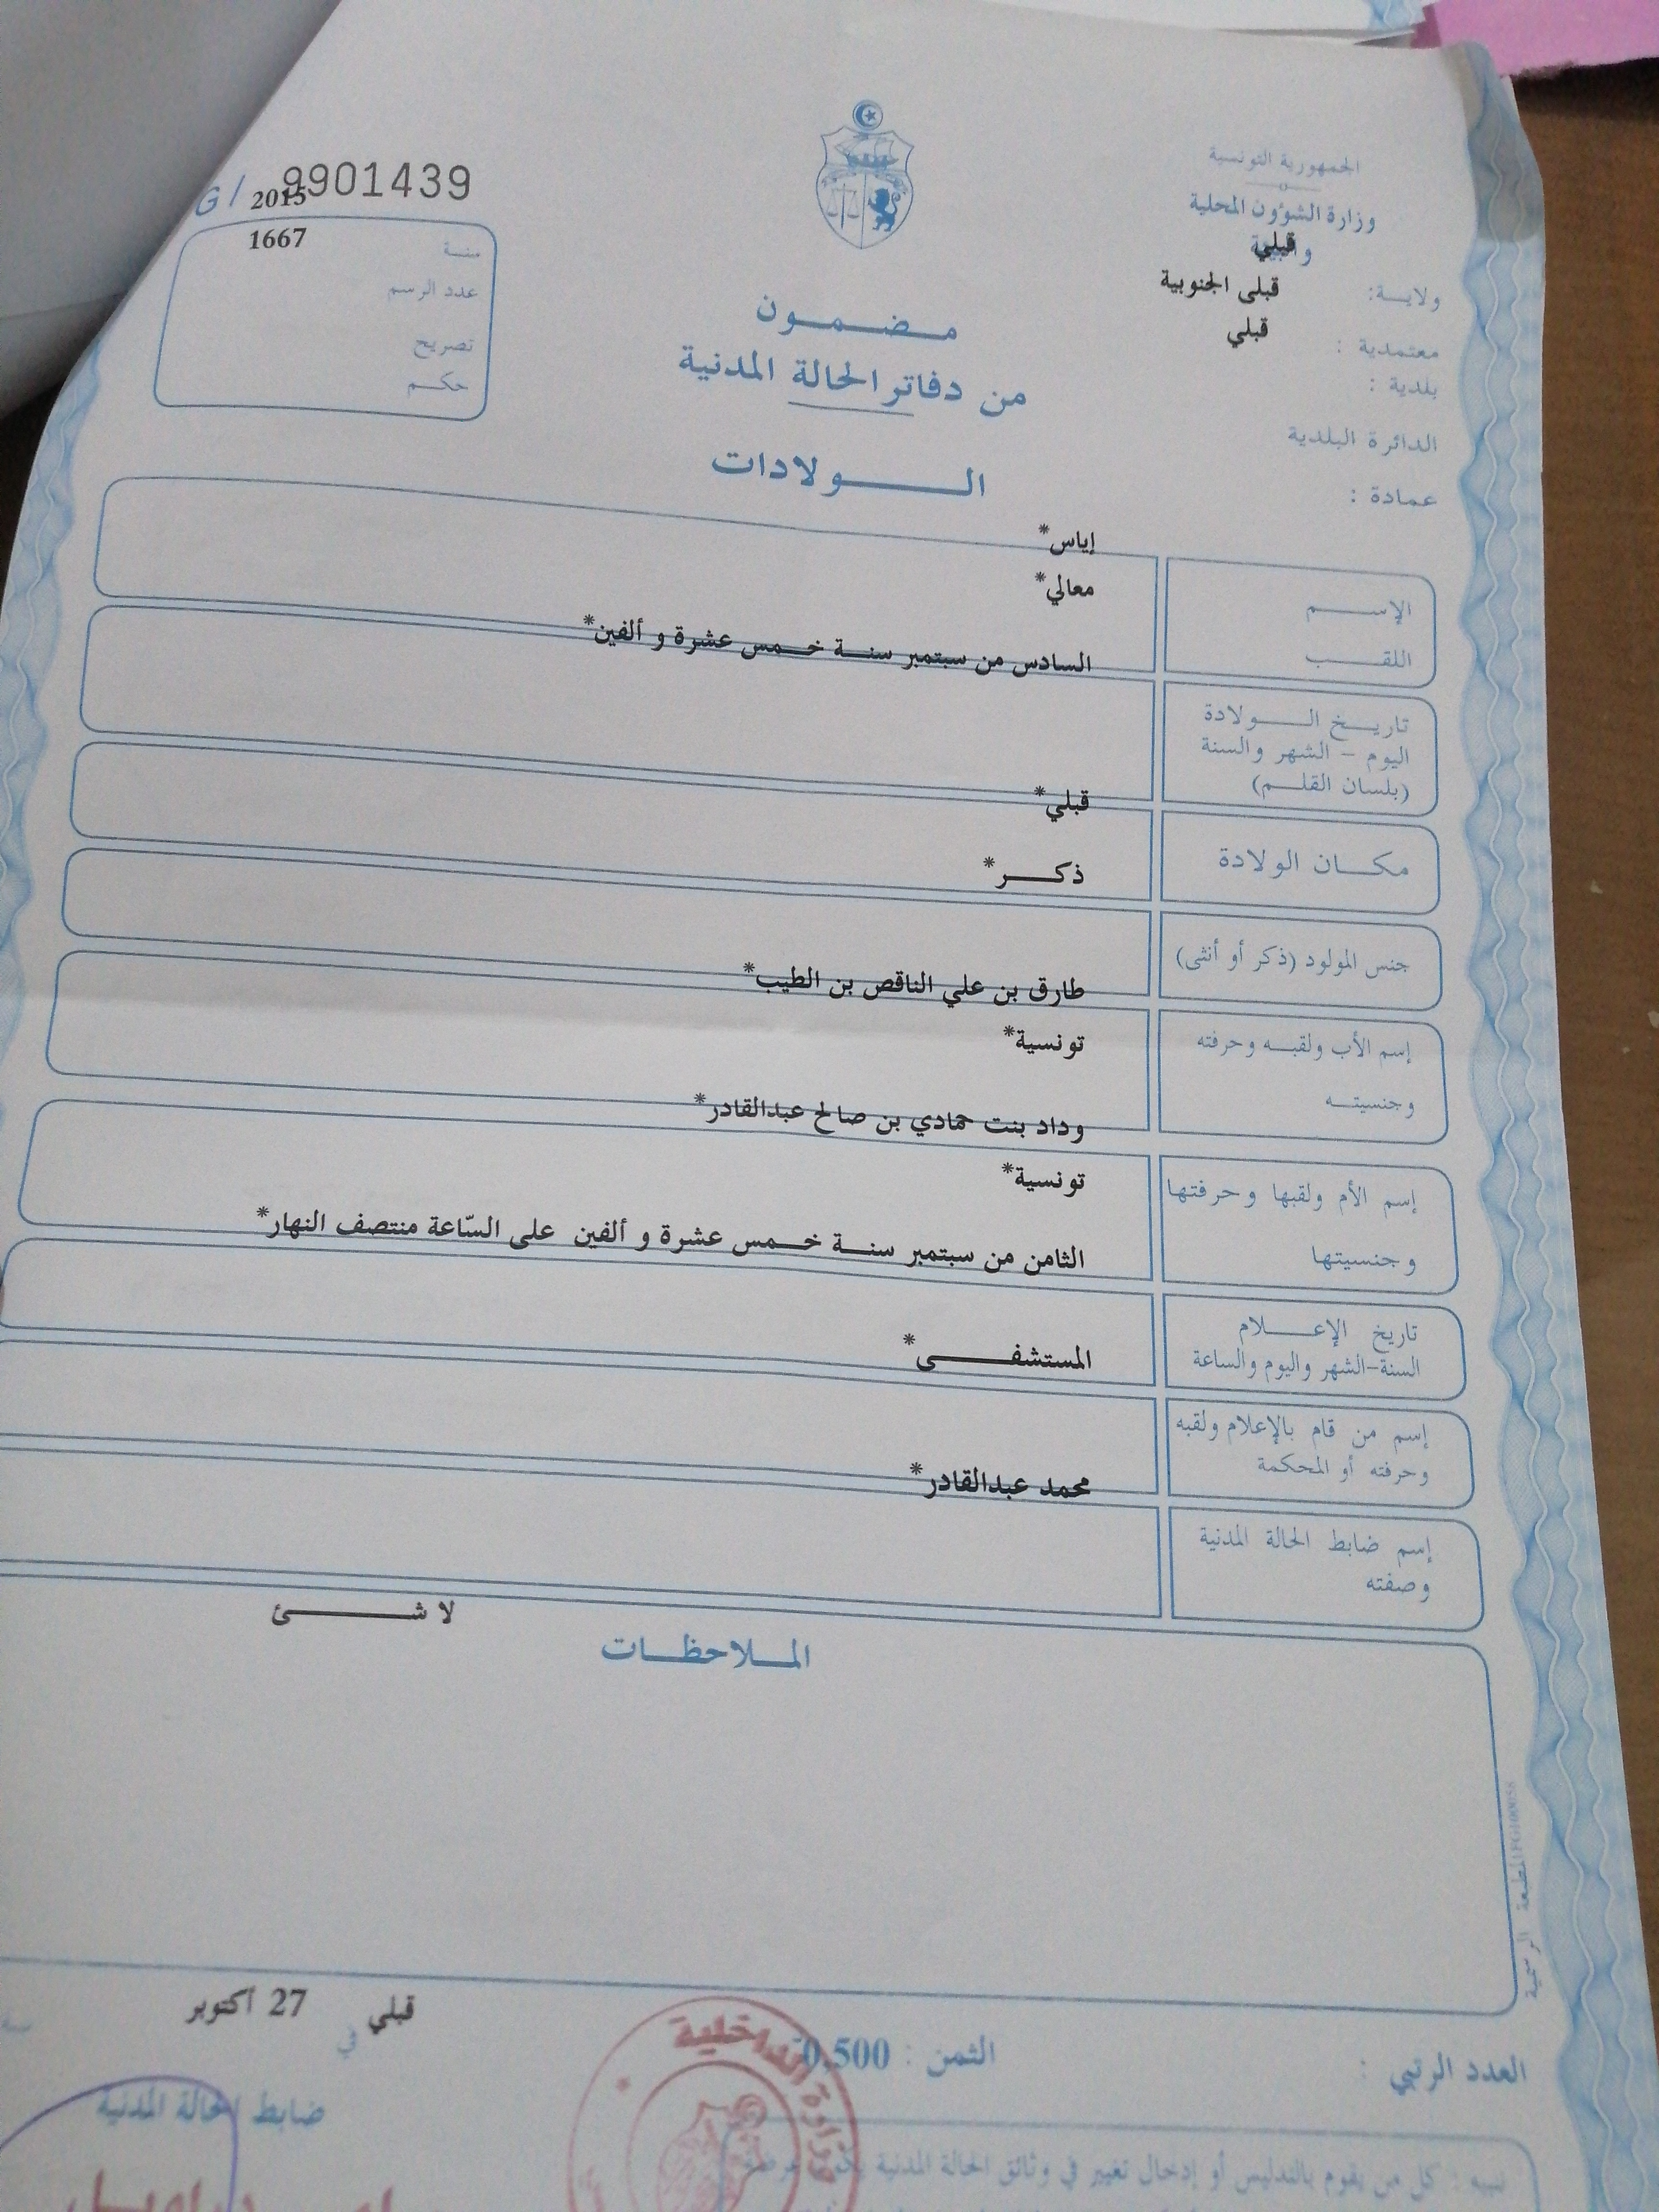 الجمهورية التونسية
وزارة الشؤون المحلية
والبيئة
قبلي
ولاية:
قبلى الجنوبية
معتمدية :
قبلي
بلدية :
الدائرة البلدية
عمادة :
G/ 9901439
2015
سنة
1667
عدد الرسم
تصريح
حكم
مضمون
من دفاتر الحالة المدنية
الولادات
إياس*
الإسم
معالي*
اللقب
السادس من سبتمبر سنة خمس عشرة و ألفين*
تاريخ الولادة
اليوم - الشهر والسنة
(بلسان القلم)
قبلي*
مكان الولادة
ذكر*
جنس المولود (ذكر أو أنثى)
طارق بن علي الناقص بن الطيب*
إسم الأب ولقبه وحرفته
تونسية*
وجنسيته
وداد بنت حمادي بن صالح عبدالقادر*
إسم الأم ولقبها وحرفتها
تونسية*
وجنسيتها
الثامن من سبتمبر سنة خمس عشرة و ألفين على السّاعة منتصف النهار*
تاريخ الإعلام
السنة-الشهر واليوم والساعة
المستشفى*
إسم من قام بالإعلام ولقبه
وحرفته أو المحكمة
محمد عبدالقادر*
إسم ضابط الحالة المدنية
وصفته
لا شئ
الملاحظات
المطبعة الرسمية
قبلي في 27 أكتوبر سنة
العدد الرتبي :
الثمن : 0,500
ضابط الحالة المدنية
وزارة الداخلية
تنبيه : كل من يقوم بالتدليس أو إدخال تغيير في وثائق الحالة المدنية يكون عرضة